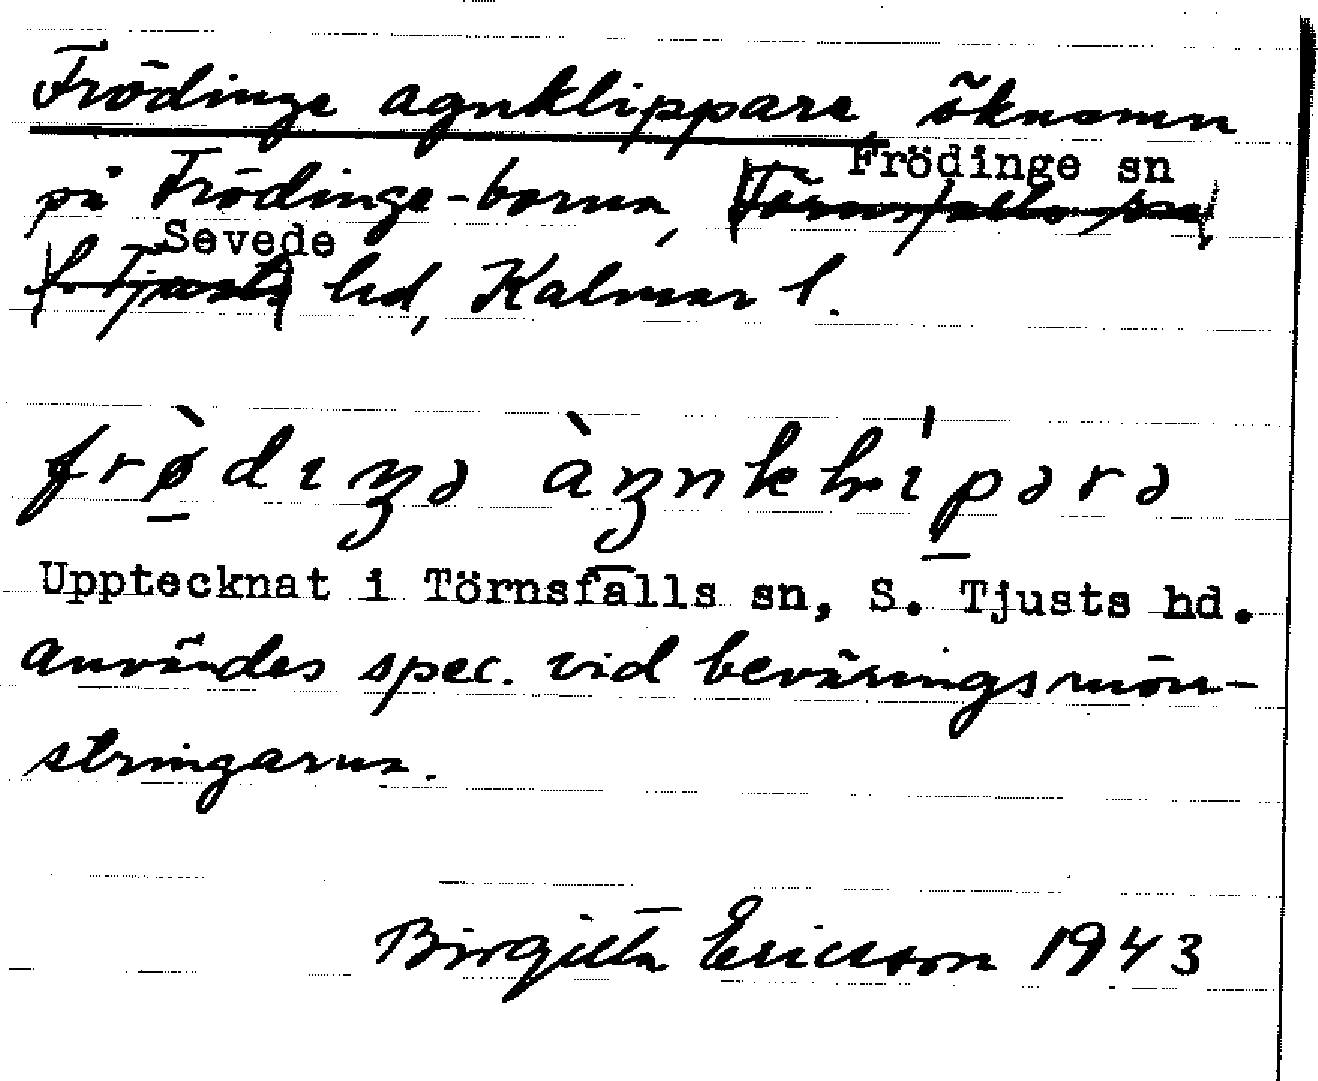 Frödinge agnklippare, öknamn
på Frödinge-borna, Frödinge sn
Sevede
hd, Kalmar l.
Upptecknat i Törnsfalls sn, S. Tjusts hd.
användes spec. vid beväringsmön-
stringarna.
Birgitta Ericsson 1943